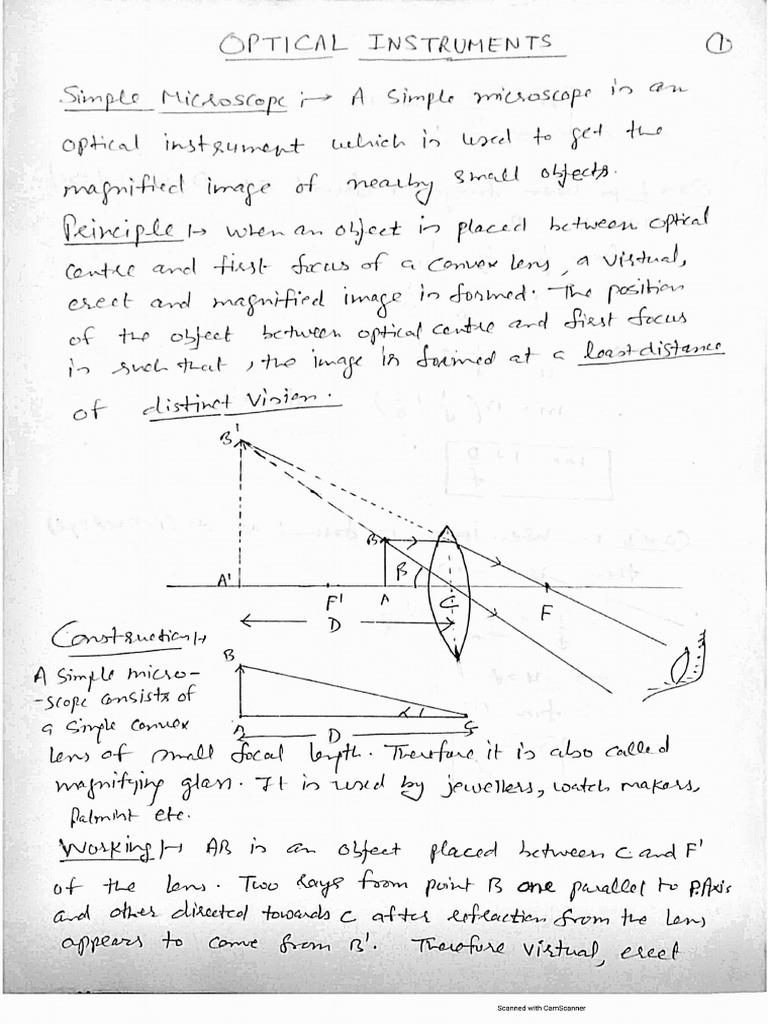 OPTICAL INSTRUMENTS 1
Simple Microscope :→ A simple microscope is an
optical instrument which is used to get the
magnified image of nearby small objects.
Peinciple :→ when an object is placed between optical
centre and first focus of a convex lens, a virtual,
erect and magnified image is formed. The position
of the object between optical centre and first focus
is such that, the image is formed at a least distance
of distinct vision.
B'
B
β
A' F' A C F
D
Construction :→
B
A simple micro-
-scope consists of
α
a simple convex
A D C
lens of small focal length. Therefore it is also called
magnifying glass. It is used by jewellers, watch makers,
Palmist etc.
Working :→ AB is an object placed between C and F'
of the lens. Two rays from point B one parallel to P.Axis
and other directed towards C after refraction from the lens
appears to come from B'. Therefore virtual, erect
Scanned with CamScanner